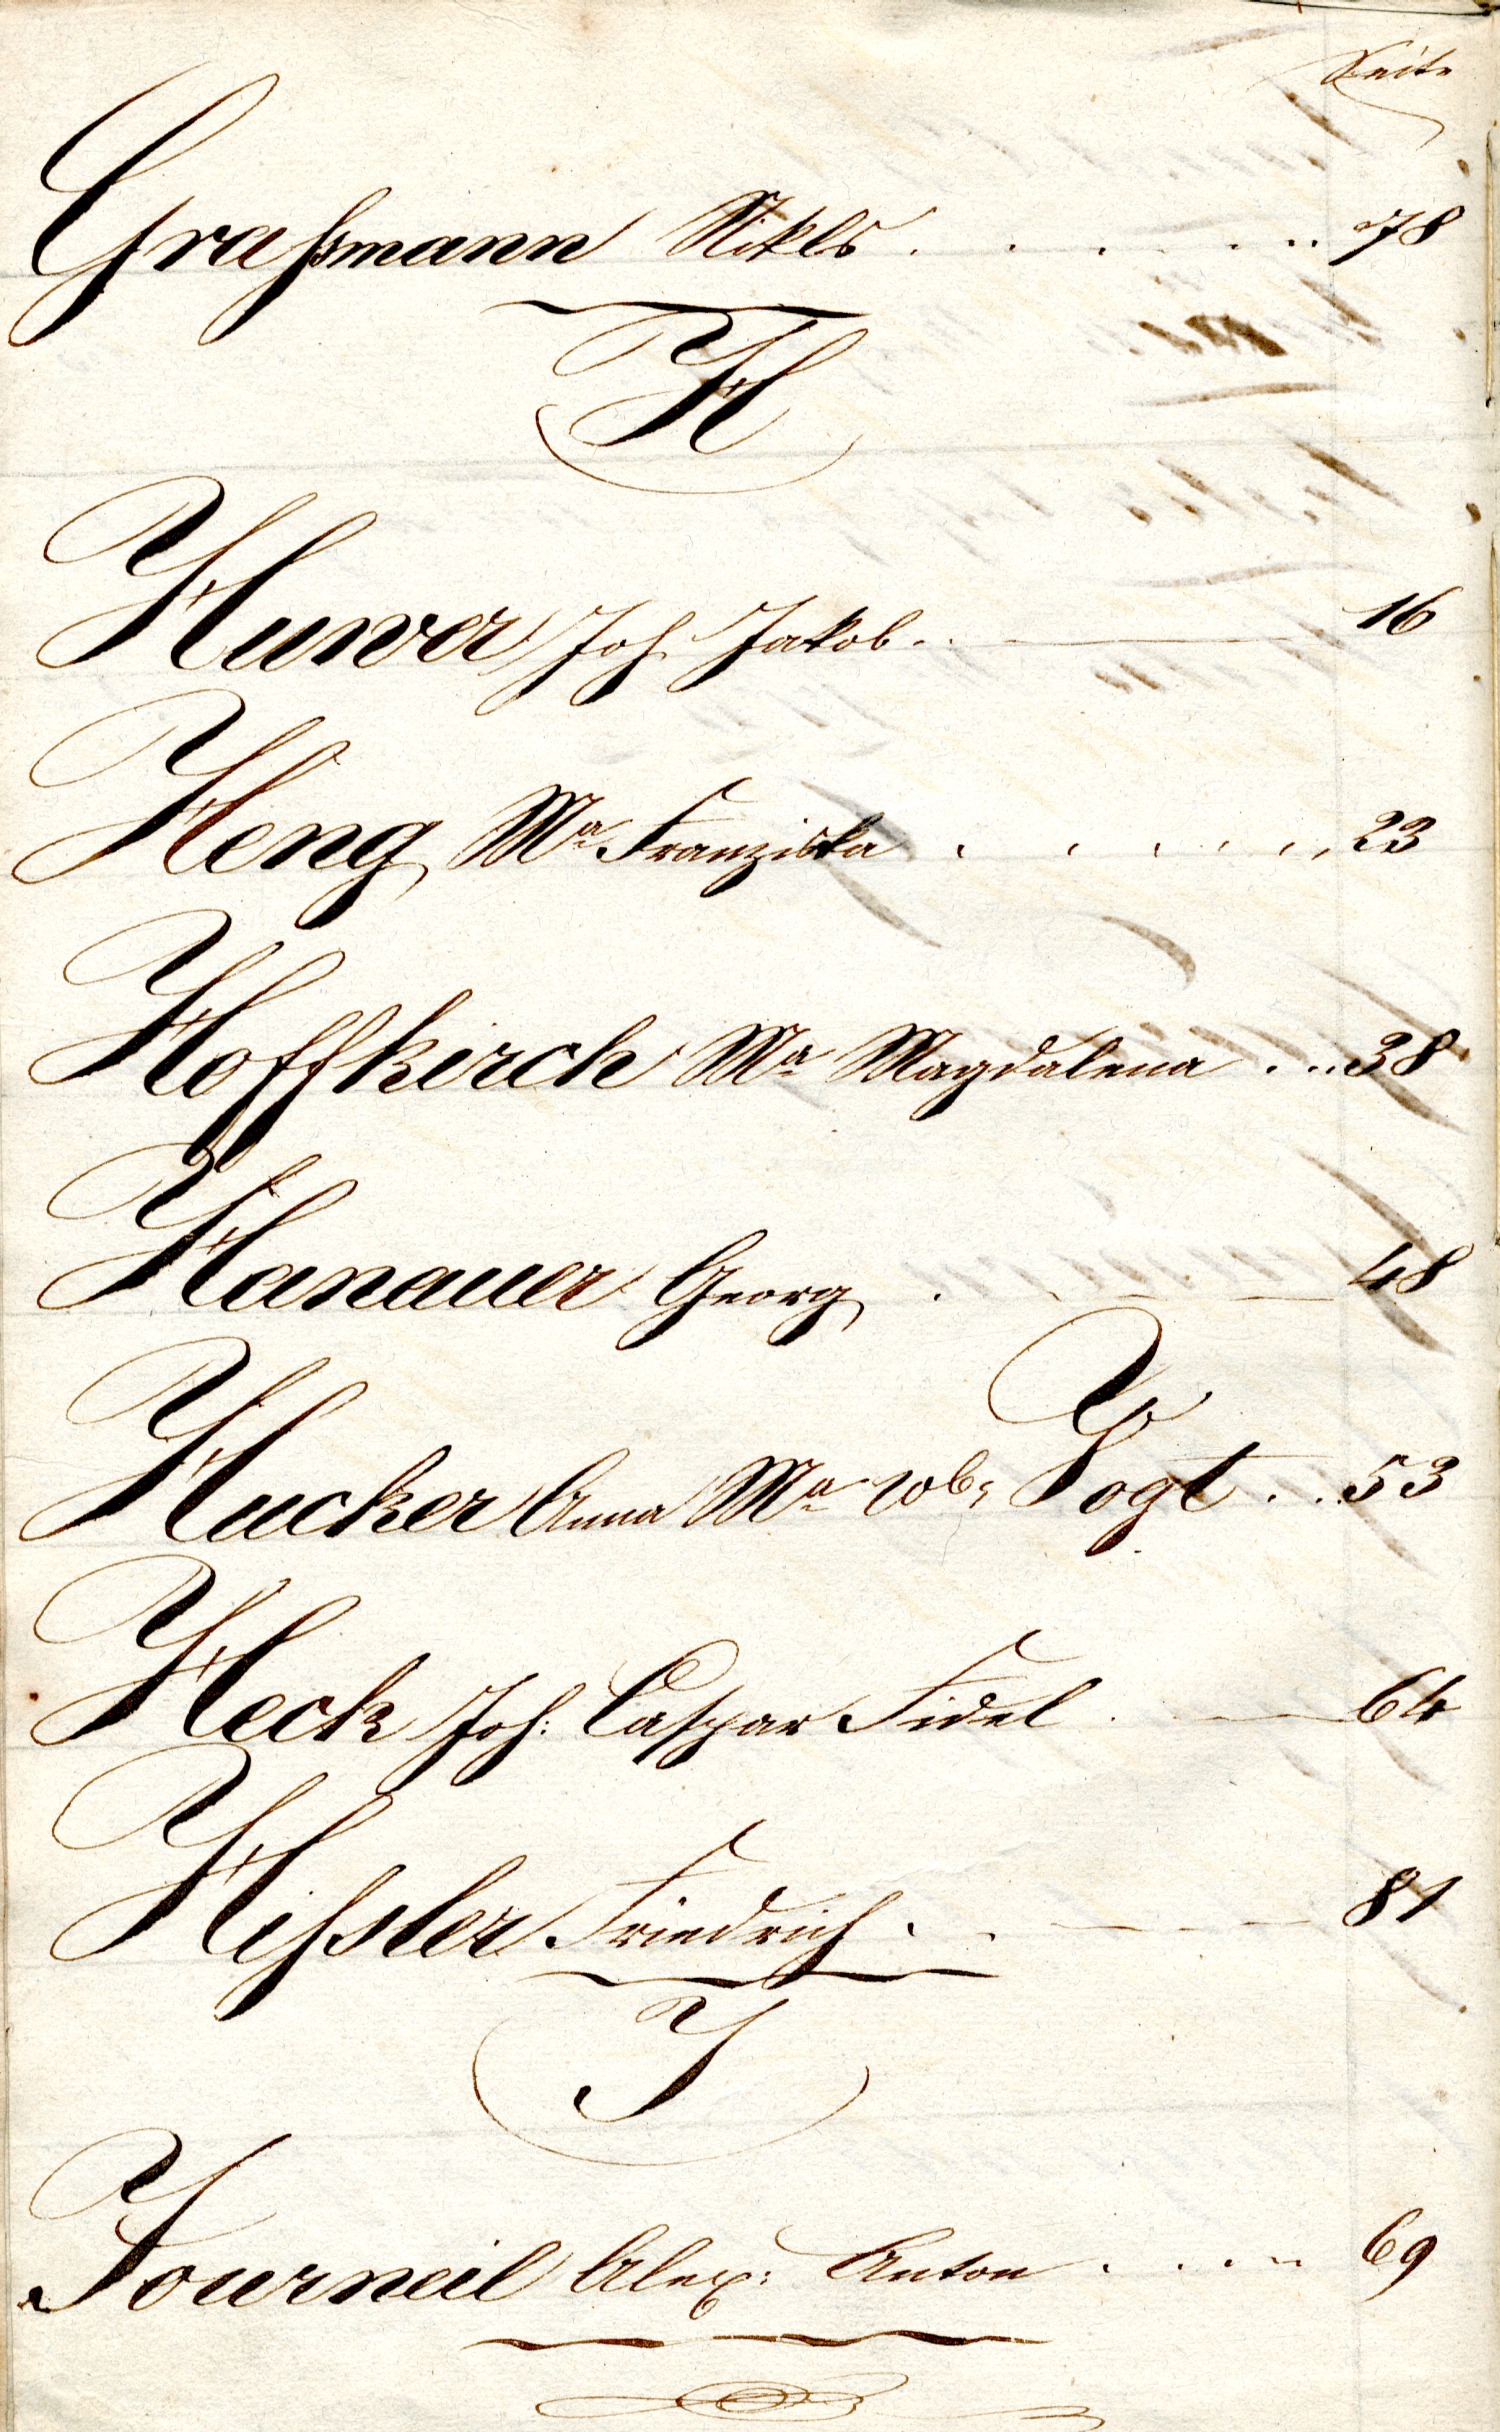 Seite
Graßmann Nikls . . . . . . . 78
H
Huwer Joh Jakob . . 16
Heng Ma Franziska . . . . . . . 23
Hoffkirch Ma Magdalena . . . 38
Hanauer Georg . 48
Hucker Anna Ma Vogt . . . 53
Heck Joh: Caspar Fidel . 64
Hißler Friedrich . . 81
J
Journeil Alex: Anton . . . . . 69